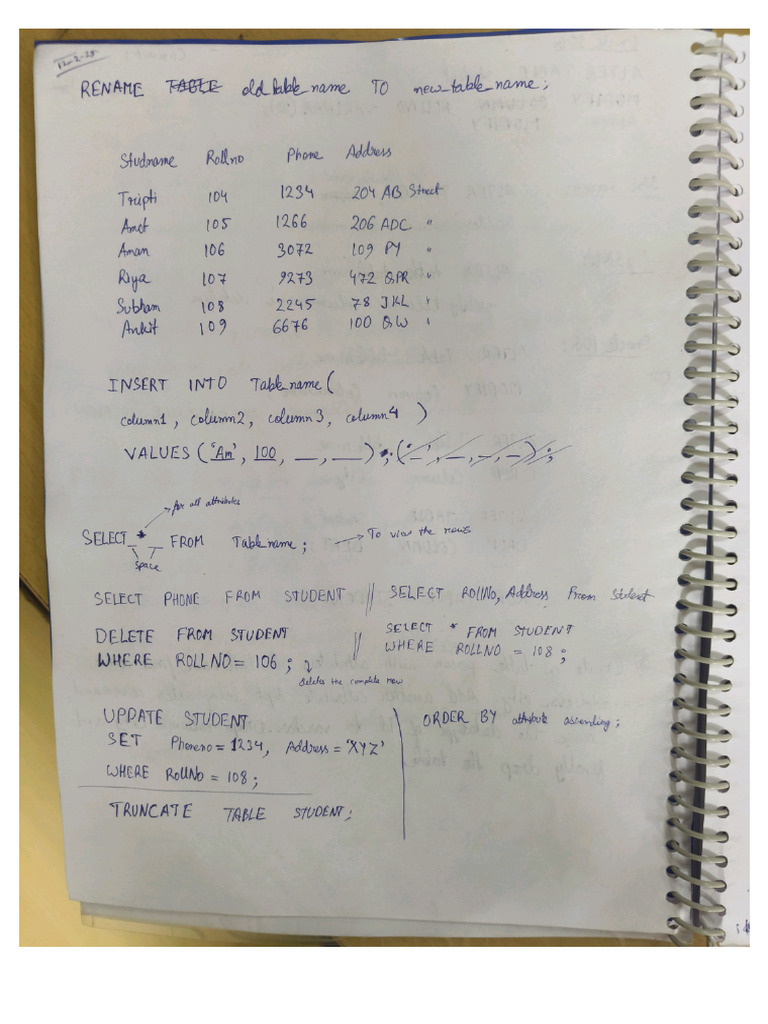 12-2-25
RENAME TABLE old_table_name TO new_table_name;
Studname Rollno Phone Address
Tripti 104 1234 204 AB Street
Amit 105 1266 206 ADC "
Aman 106 3072 109 PY "
Riya 107 9273 472 QPR "
Subham 108 2245 78 JKL "
Ankit 109 6676 100 QW "
INSERT INTO Table_name(
column1, column2, column3, column4 )
VALUES ('Am', 100, __, __) ;
for all attributes
SELECT * FROM Table_name; → To view the rows
space
SELECT PHONE FROM STUDENT // SELECT RollNo, Address From Student
DELETE FROM STUDENT // SELECT * FROM STUDENT
WHERE ROLLNO = 106 ; WHERE ROLLNO = 108 ;
deletes the complete row
UPDATE STUDENT ORDER BY attribute ascending;
SET Phoneno = 1234, Address = 'XYZ'
WHERE RollNo = 108;
TRUNCATE TABLE STUDENT;